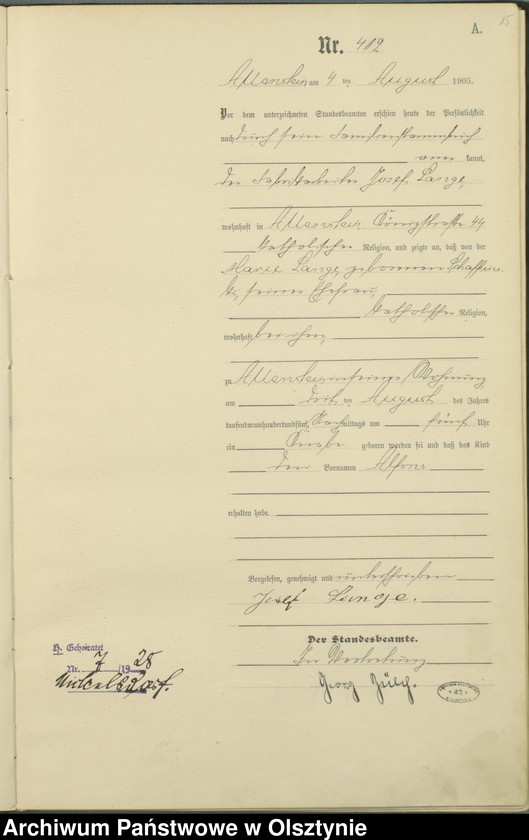 15
A.
Nr. 482
Allenstein am 4 ten August 1905.
Vor dem unterzeichneten Standesbeamten erschien heute der Persönlichkeit
nach durch sein Familienstammbuch
aner kannt,
der Fabrikarbeiter Josef Lange,
wohnhaft in Allenstein, Königstraße 44,
katholischer Religion, und zeigte an, daß von der
Marie Lange, geborenen
seiner Ehefrau,
katholischer Religion,
wohnhaft bei ihm,
zu Allenstein in seiner Wohnung
am drit ten August des Jahres
tausendneunhundertundfünf, Nachmittags um fünf Uhr
ein Knabe geboren worden sei und daß das Kind
den Vornamen Alfons
erhalten habe.
Vorgelesen, genehmigt und unterschrieben
Josef Lange.
Der Standesbeamte.
In Vertretung
Georg Zülch.
H. Geheiratet
Nr. 7 /19 28
Archiwum Państwowe w Olsztynie